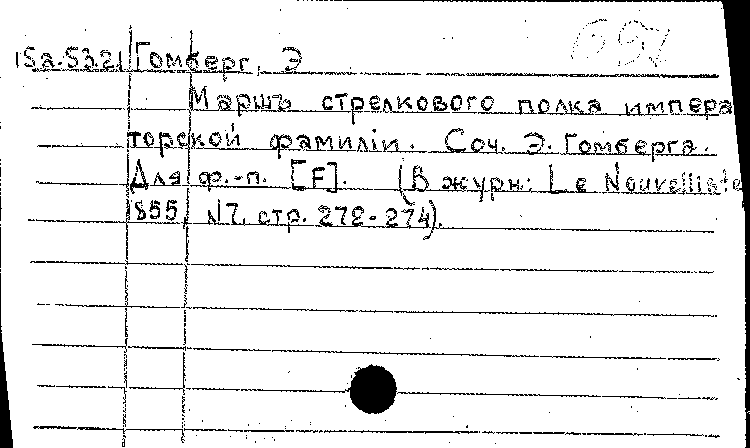 15а.53.21 Гомберг, Э
Маршъ стрелкового полка импера
торской фамилiи. Соч. Э. Гомберга.
Для ф.-п. [F]. (В журн: Le Nouvelliste
1855, N7. стр. 272-274).